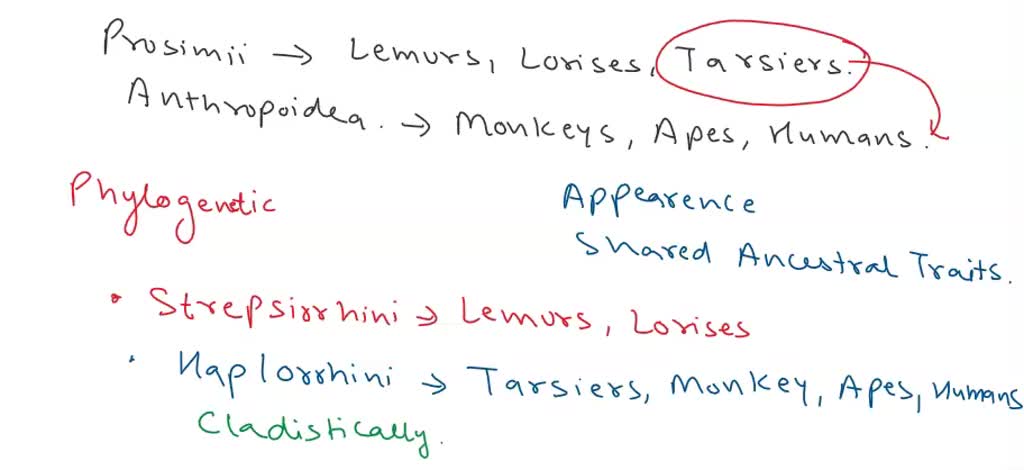 Prosimii → Lemurs, Lorises, Tarsiers.
Anthropoidea. → Monkeys, Apes, Humans.
Phylogenetic
Appearence
Shared Ancestral Traits.
• Strepsirrhini → Lemurs, Lorises
• Haplorrhini → Tarsiers, Monkey, Apes, Humans
Cladistically.